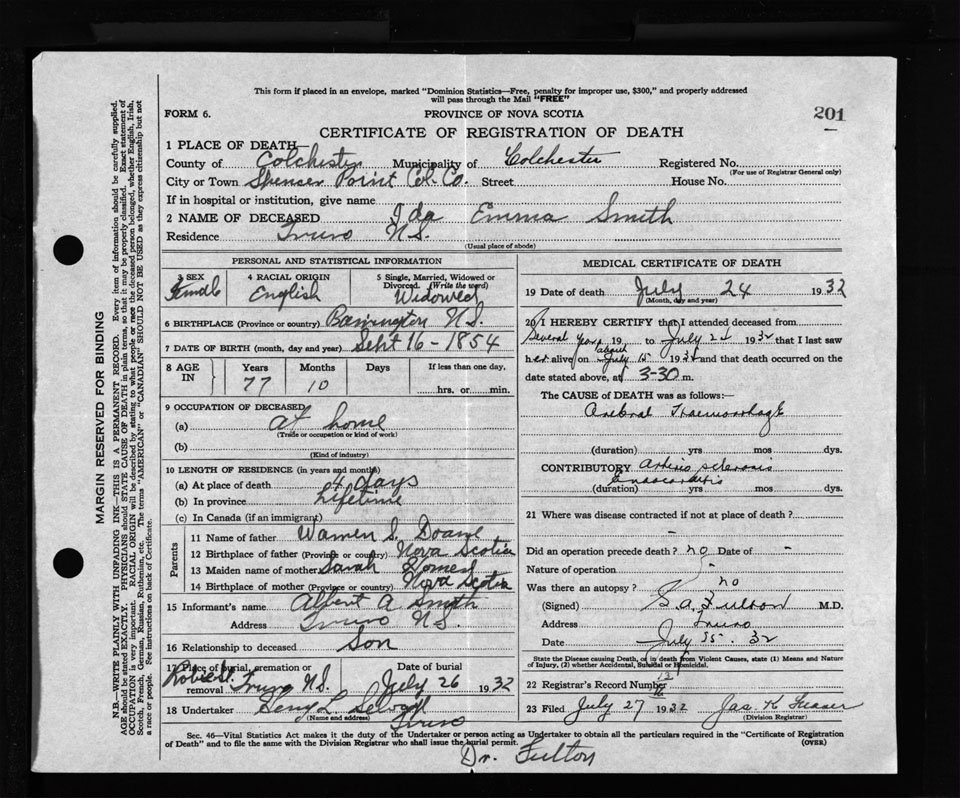 This form if placed in an envelope, marked "Dominion Statistics—Free, penalty for improper use, $300," and properly addressed
will pass through the Mail "FREE"
FORM 6.
PROVINCE OF NOVA SCOTIA
201
CERTIFICATE OF REGISTRATION OF DEATH
1 PLACE OF DEATH
County of Colchester Municipality of Colchester Registered No.
(For use of Registrar General only)
City or Town Spencer Point Col. Co. Street House No.
If in hospital or institution, give name
2 NAME OF DECEASED Ida Emma Smith
Residence Truro N.S.
(Usual place of abode)
PERSONAL AND STATISTICAL INFORMATION
3 SEX Female
4 RACIAL ORIGIN English
5 Single, Married, Widowed or Divorced. (Write the word) Widowed
6 BIRTHPLACE (Province or country) Barrington N.S.
7 DATE OF BIRTH (month, day and year) Sept 16 - 1854
8 AGE IN Years Months Days If less than one day,
77 10 hrs. or min.
9 OCCUPATION OF DECEASED
(a) at home
(Trade or occupation or kind of work)
(b)
(Kind of industry)
10 LENGTH OF RESIDENCE (in years and months)
(a) At place of death 4 days
(b) In province Lifetime
(c) In Canada (if an immigrant)
Parents
11 Name of father Warren S. Doane
12 Birthplace of father (Province or country) Nova Scotia
13 Maiden name of mother Sarah
14 Birthplace of mother (Province or country) Nova Scotia
15 Informant's name Albert A Smith
Address Truro N.S.
16 Relationship to deceased Son
17 Place of burial, cremation or removal Robie St. Truro N.S.
Date of burial July 26 1932
18 Undertaker
(Name and address) Truro
MEDICAL CERTIFICATE OF DEATH
19 Date of death July 24 1932
(Month, day and year)
20 I HEREBY CERTIFY that I attended deceased from
Several years 19 to July 24 1932 that I last saw
her alive on about July 15 1932 and that death occurred on
date stated above, at 3-30 m.
The CAUSE OF DEATH was as follows:
Cerebral Haemorrhage
(duration) yrs mos dys.
CONTRIBUTORY Arterio sclerosis
Endocarditis
(duration) yrs mos dys.
21 Where was disease contracted if not at place of death?
Did an operation precede death? no Date of -
Nature of operation -
Was there an autopsy? no
(Signed) S. A. Fulton M.D.
Address Truro
Date July 25. 32
State the Disease causing Death, or in death from Violent Causes, state (1) Means and Nature
of Injury, (2) whether Accidental, Suicidal or Homicidal.
22 Registrar's Record Number
23 Filed July 27 1932 Jas. K Fraser
(Division Registrar)
Sec. 46—Vital Statistics Act makes it the duty of the Undertaker or person acting as Undertaker to obtain all the particulars required in the "Certificate of Registration
of Death" and to file the same with the Division Registrar who shall issue the burial permit. (OVER)
Dr. Fulton
MARGIN RESERVED FOR BINDING
N.B.—WRITE PLAINLY WITH UNFADING INK—THIS IS A PERMANENT RECORD. Every item of information should be carefully supplied.
AGE should be stated EXACTLY. PHYSICIANS should STATE CAUSE OF DEATH in plain terms, so that it may be properly classified. Exact statement of
OCCUPATION is very important. RACIAL ORIGIN will be described by stating to what people or race the deceased person belonged, whether English, Irish,
Scotch, French, German, Russian, Ruthenian, etc. The terms "AMERICAN" or "CANADIAN" SHOULD NOT BE USED as they express citizenship but not
a race or people. See instructions on back of Certificate.